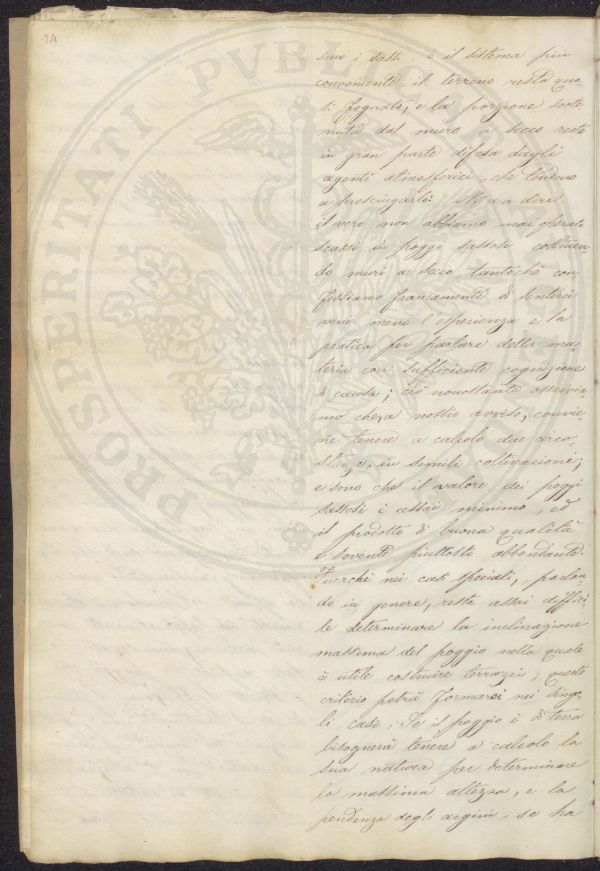 24
PROSPERITATI PVBLICAE
sono i sassi, è il sistema più
conveniente il terreno resta qua-
si fognato, e la porzione soste
nuta dal muro a secco resta
in gran parte difesa dagli
agenti atmosferici, che tendono
a prosciugarlo. Ma a dire
il vero non abbiamo mai operato
scassi in poggi sassosi costruen-
do muri a secco, tantochè con
fessiamo francamente di sentirci
venir meno l'esperienza e la
pratica per parlare della ma-
teria con sufficiente cognizione
di causa; ciò nonostante osservia-
mo che, a nostro avviso, convie-
ne tenere a calcolo due circo-
stanze, in simili coltivazioni;
e sono che il valore dei poggi
sassosi è assai minimo, ed
il prodotto di buona qualità
e sovente piuttosto abbondante.
Fuorchè nei casi speciali, parlan-
do in genere, resta assai diffici-
le determinare la inclinazione
massima del poggio nella quale
è utile costruire terrazzi; questo
criterio potrà formarsi nei singo-
li casi. Se il poggio è di terra
bisognerà tenere a calcolo la
sua natura per determinare
la massima altezza, e la
pendenza degli argini, se ha